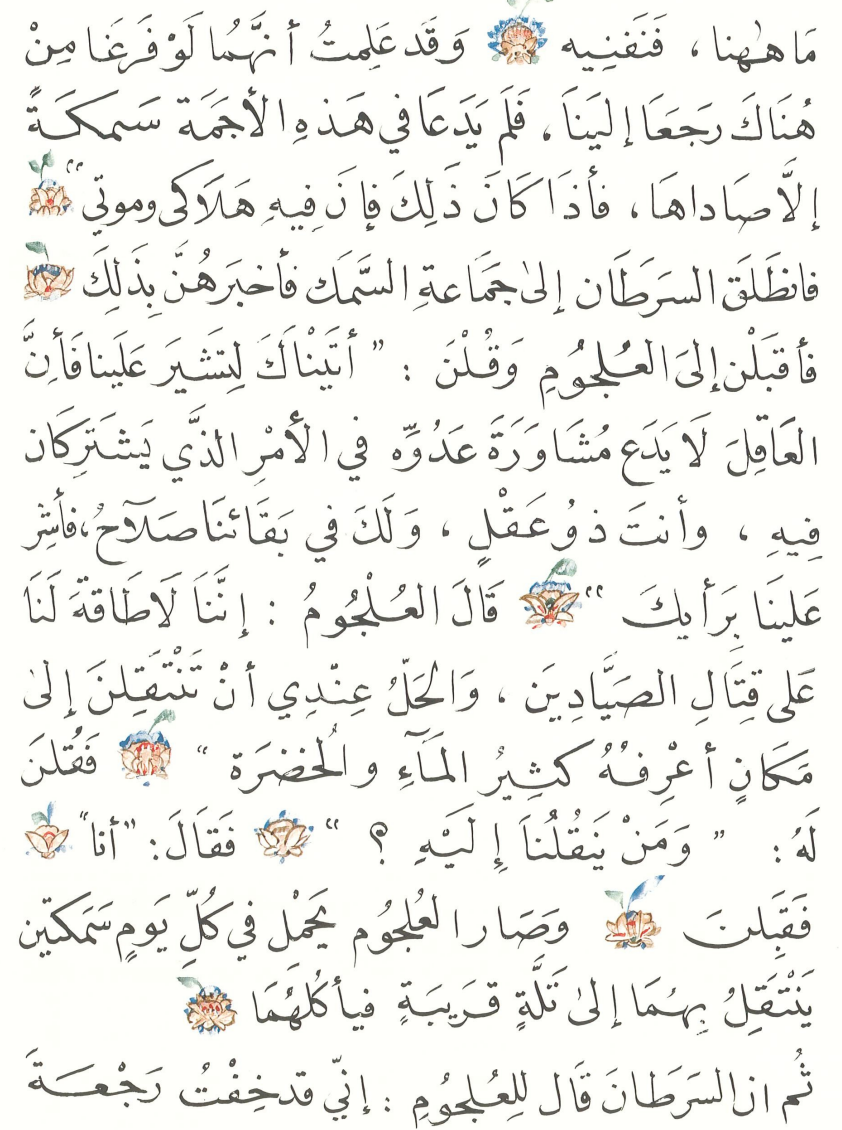 مَا هٰهنا ، فَنَفنِيه وَقَد عَلِمتُ أنَّهُما لَوْ فَرغَا مِنْ
هُنَاكَ رَجَعَا إليَناَ ، فَلَم يَدَعَا في هَذهِ الأجَمَة سَمكَةً
إلاَّ صَاداهَا ، فأذَا كَانَ ذَلِكَ فإنَ فِيهِ هَلَاكى وموتي"
فانطَلَقَ السَرَطَان إلىٰ جمَاَعةِ السَّمَك فأخبَرهُنَّ بِذَلِكَ
فأقبَلْن إلىَ العُلجُومِ وَقُلْنَ : " أتَيْنَاكَ لِتَشيَر عَلَينا فَأنَّ
العَاقِلَ لَا يَدَع مُشَاوَرَةَ عَدُوِّه في الأمْرِ الذَّي يَشتَرِكَان
فِيهِ ، وأنتَ ذوُ عَقْلٍ ، وَلَكَ في بَقَائنَا صَلَاحُ ، فأشِر
عَلينَا بِرَأيكَ " قَالَ العُلْجُومُ : إنَّنَا لَا طَاقةَ لَنَا
عَلى قِتَالِ الصَيَّادِينَ ، وَالحَلُّ عِنْدِي أنْ تَنْتَقِلنَ إلىٰ
مَكَانٍ أعْرِفهُ كثيِرُ المَآءِ والُخضرَة " فَقُلنَ
لَهُ : " وَمَنْ يَنقُلُناَ إليْهِ ؟ " فقَالَ : "أنا"
فَقَبِلنَ وَصَارا لعُلجُوم يَحمْل في كُلِّ يَومٍ سَمَكتَين
يَنْتَقِلُ بِهُمَا إلىٰ تَلَّةٍ قَريبَةٍ فيأكُلهُمَا
ثُم ان السَرَطَانَ قَال لِلعُلجوُمِ : إنّي قدخِفْتُ رَجْعَةَ